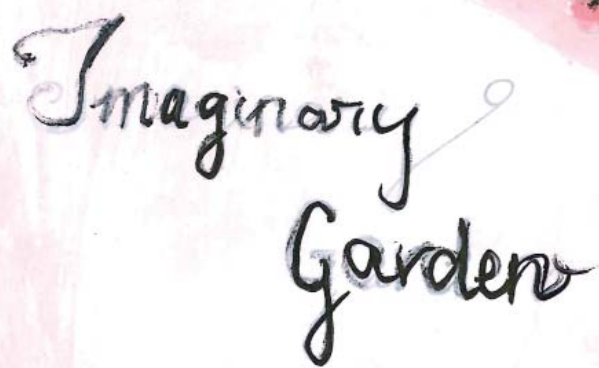 Imaginary
Garden